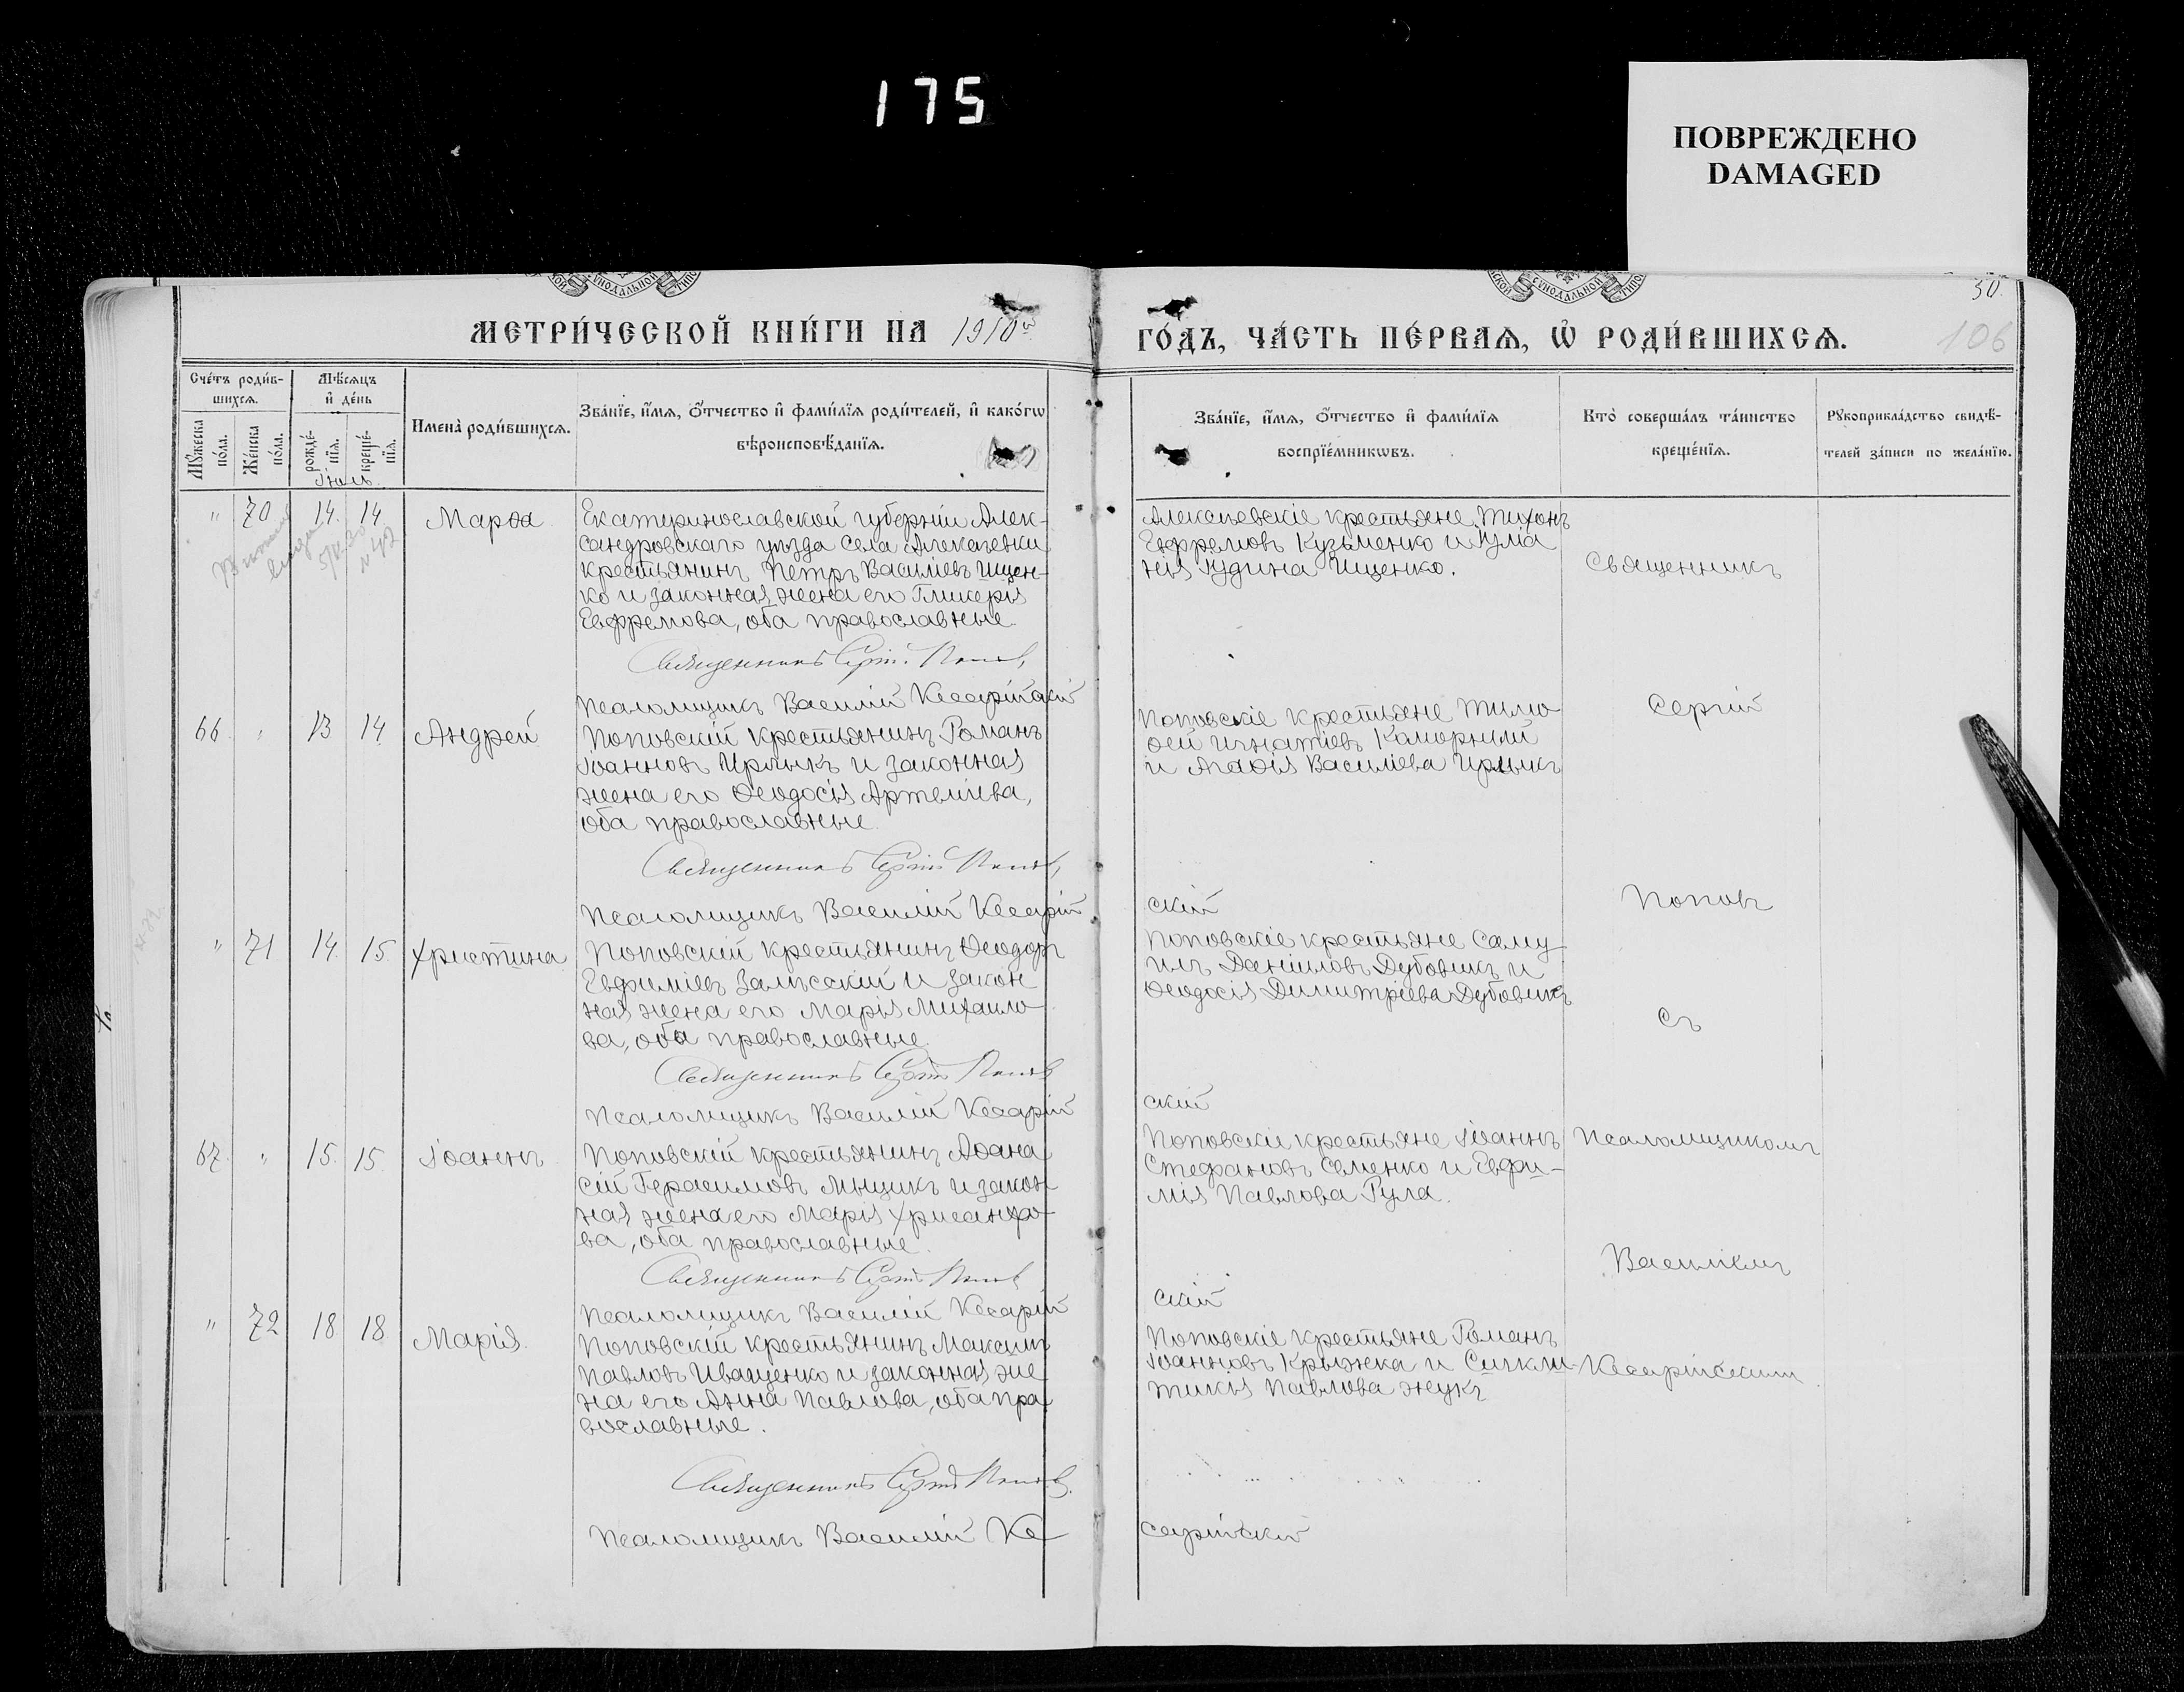 175
ПОВРЕЖДЕНО
DAMAGED
30.
106
МЕТРИ́ЧЕСКОЙ КНИ́ГИ НА 1910й
ГО́ДЪ, ЧА́СТЬ ПЕ́РВАѦ, Ѽ РОДИ́ВШИХСѦ.
Сче́тъ роди́в-
шихсѧ.
Мѣ́сѧцъ
и҆ де́нь
Мꙋ́жеска
по́ла.
Же́нска
по́ла.
рожде́-
нїѧ.
креще́-
нїѧ.
Імена̀ роди́вшихсѧ.
Зва́нїе, и҆́мѧ, ѻ҆́тчество и҆ фами́лїѧ роди́телей, и҆ како́гѡ
вѣроисповѣ́данїѧ.
Зва́нїе, и҆́мѧ, ѻ҆́тчество и҆ фами́лїѧ
воспрїе́мникѡвъ.
Кто̀ соверша́лъ та́инство
креще́нїѧ.
Рꙋкоприкла́дство свидѣ́-
телей за́писи по жела́нїю.
Іюль.
" 70 14. 14 Марѳа
Екатеринославской губерніи Алек-
сандровскаго уѣзда села Алексѣевки
крестьянинъ Петръ Василіевъ Ищен-
ко и законная жена его Гликерія
Евфремова, оба православные.
Священникъ Сергій Поповъ
Псаломщикъ Василій Кесарійскій
Алексѣевскіе крестьяне Тихонъ
Евфремовъ Кузьменко и Іуліа
нія Іудина Ищенко.
Священникъ
66. " 13 14 Андрей
Поповскій крестьянинъ Романъ
Іоанновъ Ирлыкъ и законная
жена его Ѳеодосія Артеміева,
оба православные.
Священникъ Сергій Поповъ
Псаломщикъ Василій Кесарій
скій
Поповскіе крестьяне Тимо-
ѳей Игнатіевъ Каморный
и Агаѳія Василіева Ирлыкъ
Сергій
Поповъ
" 71 14. 15. Христина
Поповскій крестьянинъ Ѳеодоръ
Евфиміевъ Залѣсскій и закон
ная жена его Марія Михаило-
ва, оба православные.
Священникъ Сергій Поповъ
Псаломщикъ Василій Кесарій
скій
Поповскіе крестьяне Саму-
илъ Даніиловъ Дубовикъ и
Ѳеодосія Димитріева Дубовикъ
съ
67. " 15. 15. Іоаннъ
Поповскій крестьянинъ Аѳана
сій Герасимовъ Мыцикъ и закон
ная жена его Марія Хрисанфо-
ва, оба православные.
Священникъ Сергій Поповъ
Псаломщикъ Василій Кесарій
скій
Поповскіе крестьяне Іоаннъ
Стефановъ Семенко и Евфи-
мія Павлова Рула.
Псаломщикомъ
Василіемъ
" 72 18 18 Марія.
Поповскій крестьянинъ Максимъ
Павловъ Иващенко и законная же
на его Анна Павлова, оба пра
вославные.
Священникъ Сергій Поповъ
Псаломщикъ Василій Ке
сарійскій
Поповскіе крестьяне Романъ
Іоанновъ Крыжка и Сигкли-
тикія Павлова Жукъ
Кесарійскимъ